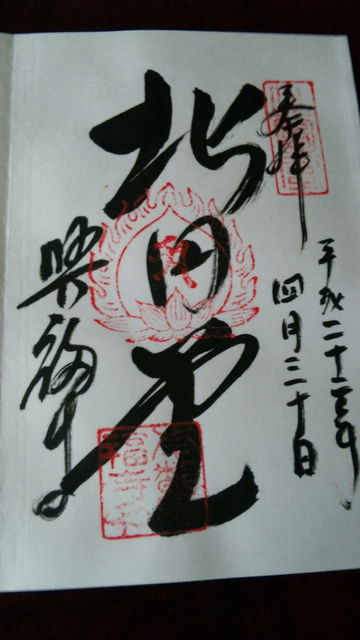 奉拝
平成二十三年
四月三十日
北円堂
興福寺